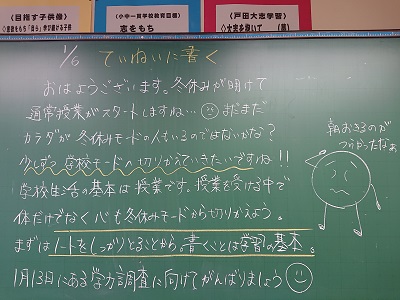 【目指す子供像】
(小中一貫学校教育目標)
志をもち
【戸田大志学習】
1/6 ていねいに書く
おはようございます。冬休みが明けて
通常授業がスタートしますね… まだまだ
カラダが冬休みモードの人もいるのではないかな?
少しずつ学校モードへ切りかえていきたいですね!!
学校生活の基本は授業です。授業を受ける中で
体だけでなく心も冬休みモードから切りかえよう。
まずはノートをしっかりとることから。書くことは学習の基本。
1月13日にある学力調査に向けてがんばりましょう
朝おきるのが
つらかったなぁ